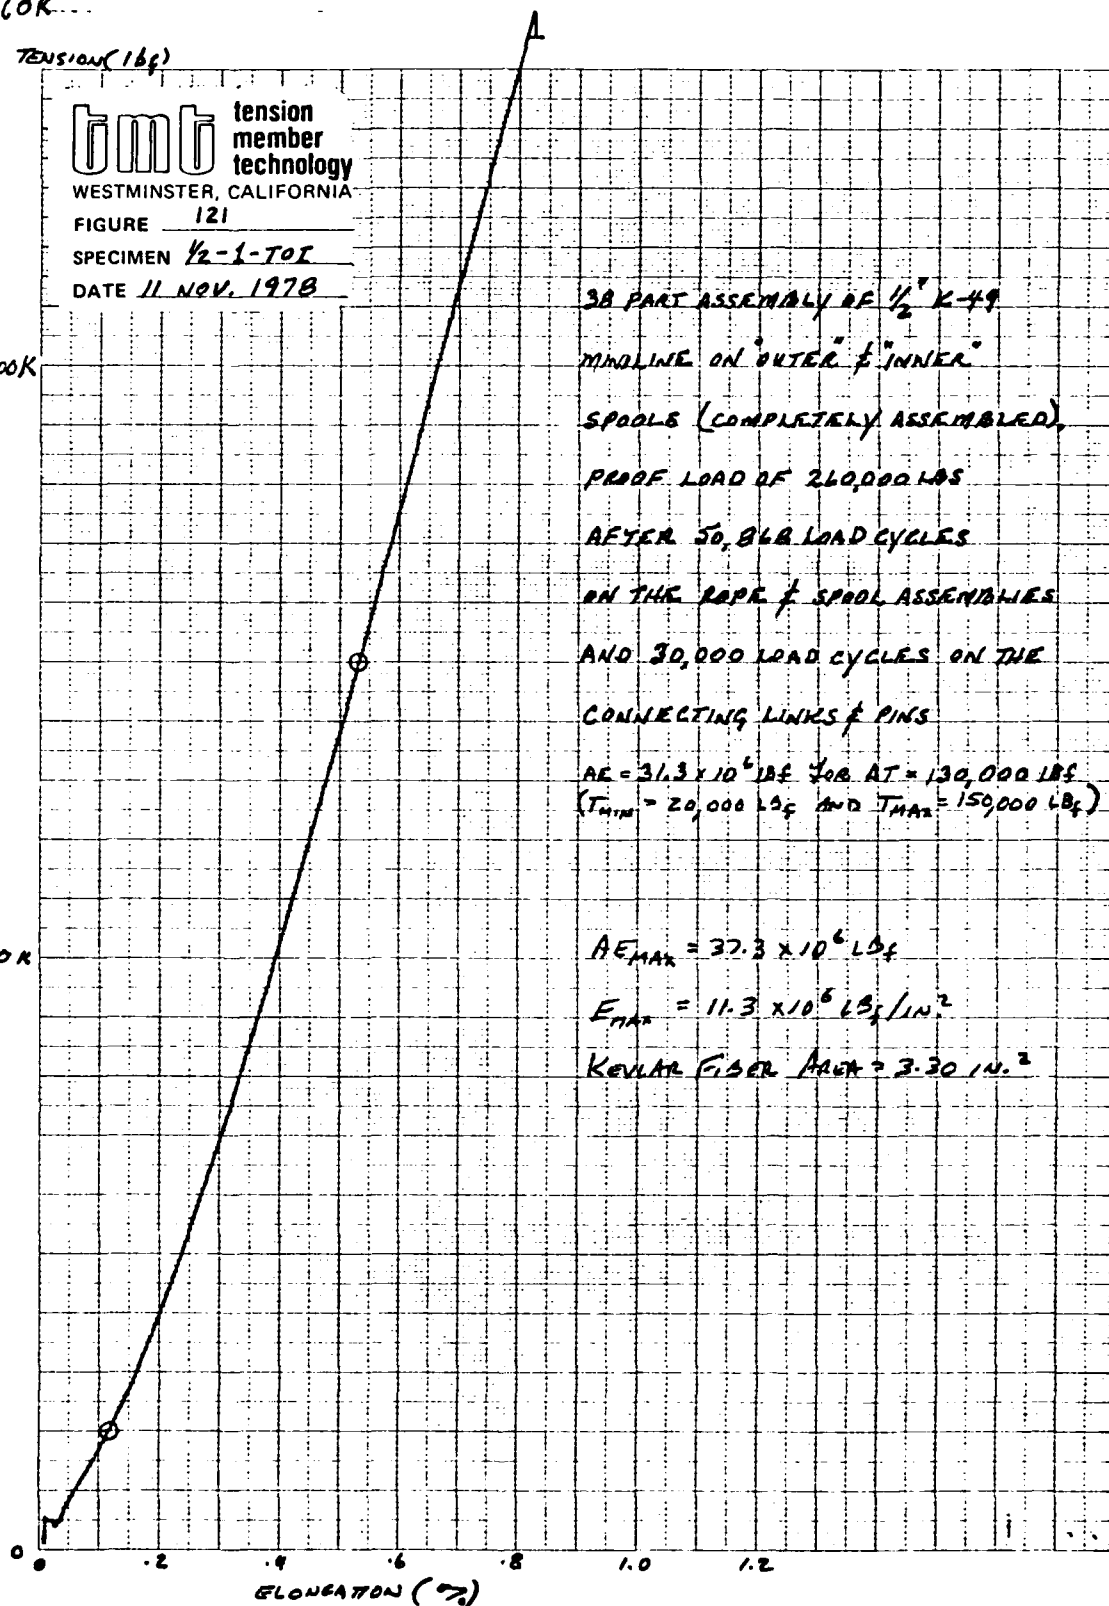 60K
TENSION (lbf)
tmt tension
member
technology
WESTMINSTER, CALIFORNIA
FIGURE 121
SPECIMEN 1/2-1-TOI
DATE 11 NOV. 1978
00K
38 PART ASSEMBLY OF 1/2" K-49
MINILINE ON "OUTER" & "INNER"
SPOOLS (COMPLETELY ASSEMBLED).
PROOF LOAD OF 260,000 LBS
AFTER 50,868 LOAD CYCLES
ON THE ROPE & SPOOL ASSEMBLIES
AND 30,000 LOAD CYCLES ON THE
CONNECTING LINKS & PINS
AE = 31.3 x 10⁶ LBf FOR ΔT = 130,000 LBf
(TMIN = 20,000 LBf AND TMAX = 150,000 LBf)
0K
AEMAX = 37.3 x 10⁶ LBf
EMAX = 11.3 x 10⁶ LBf/IN.²
KEVLAR FIBER AREA = 3.30 IN.²
0
0 .2 .4 .6 .8 1.0 1.2
ELONGATION (%)